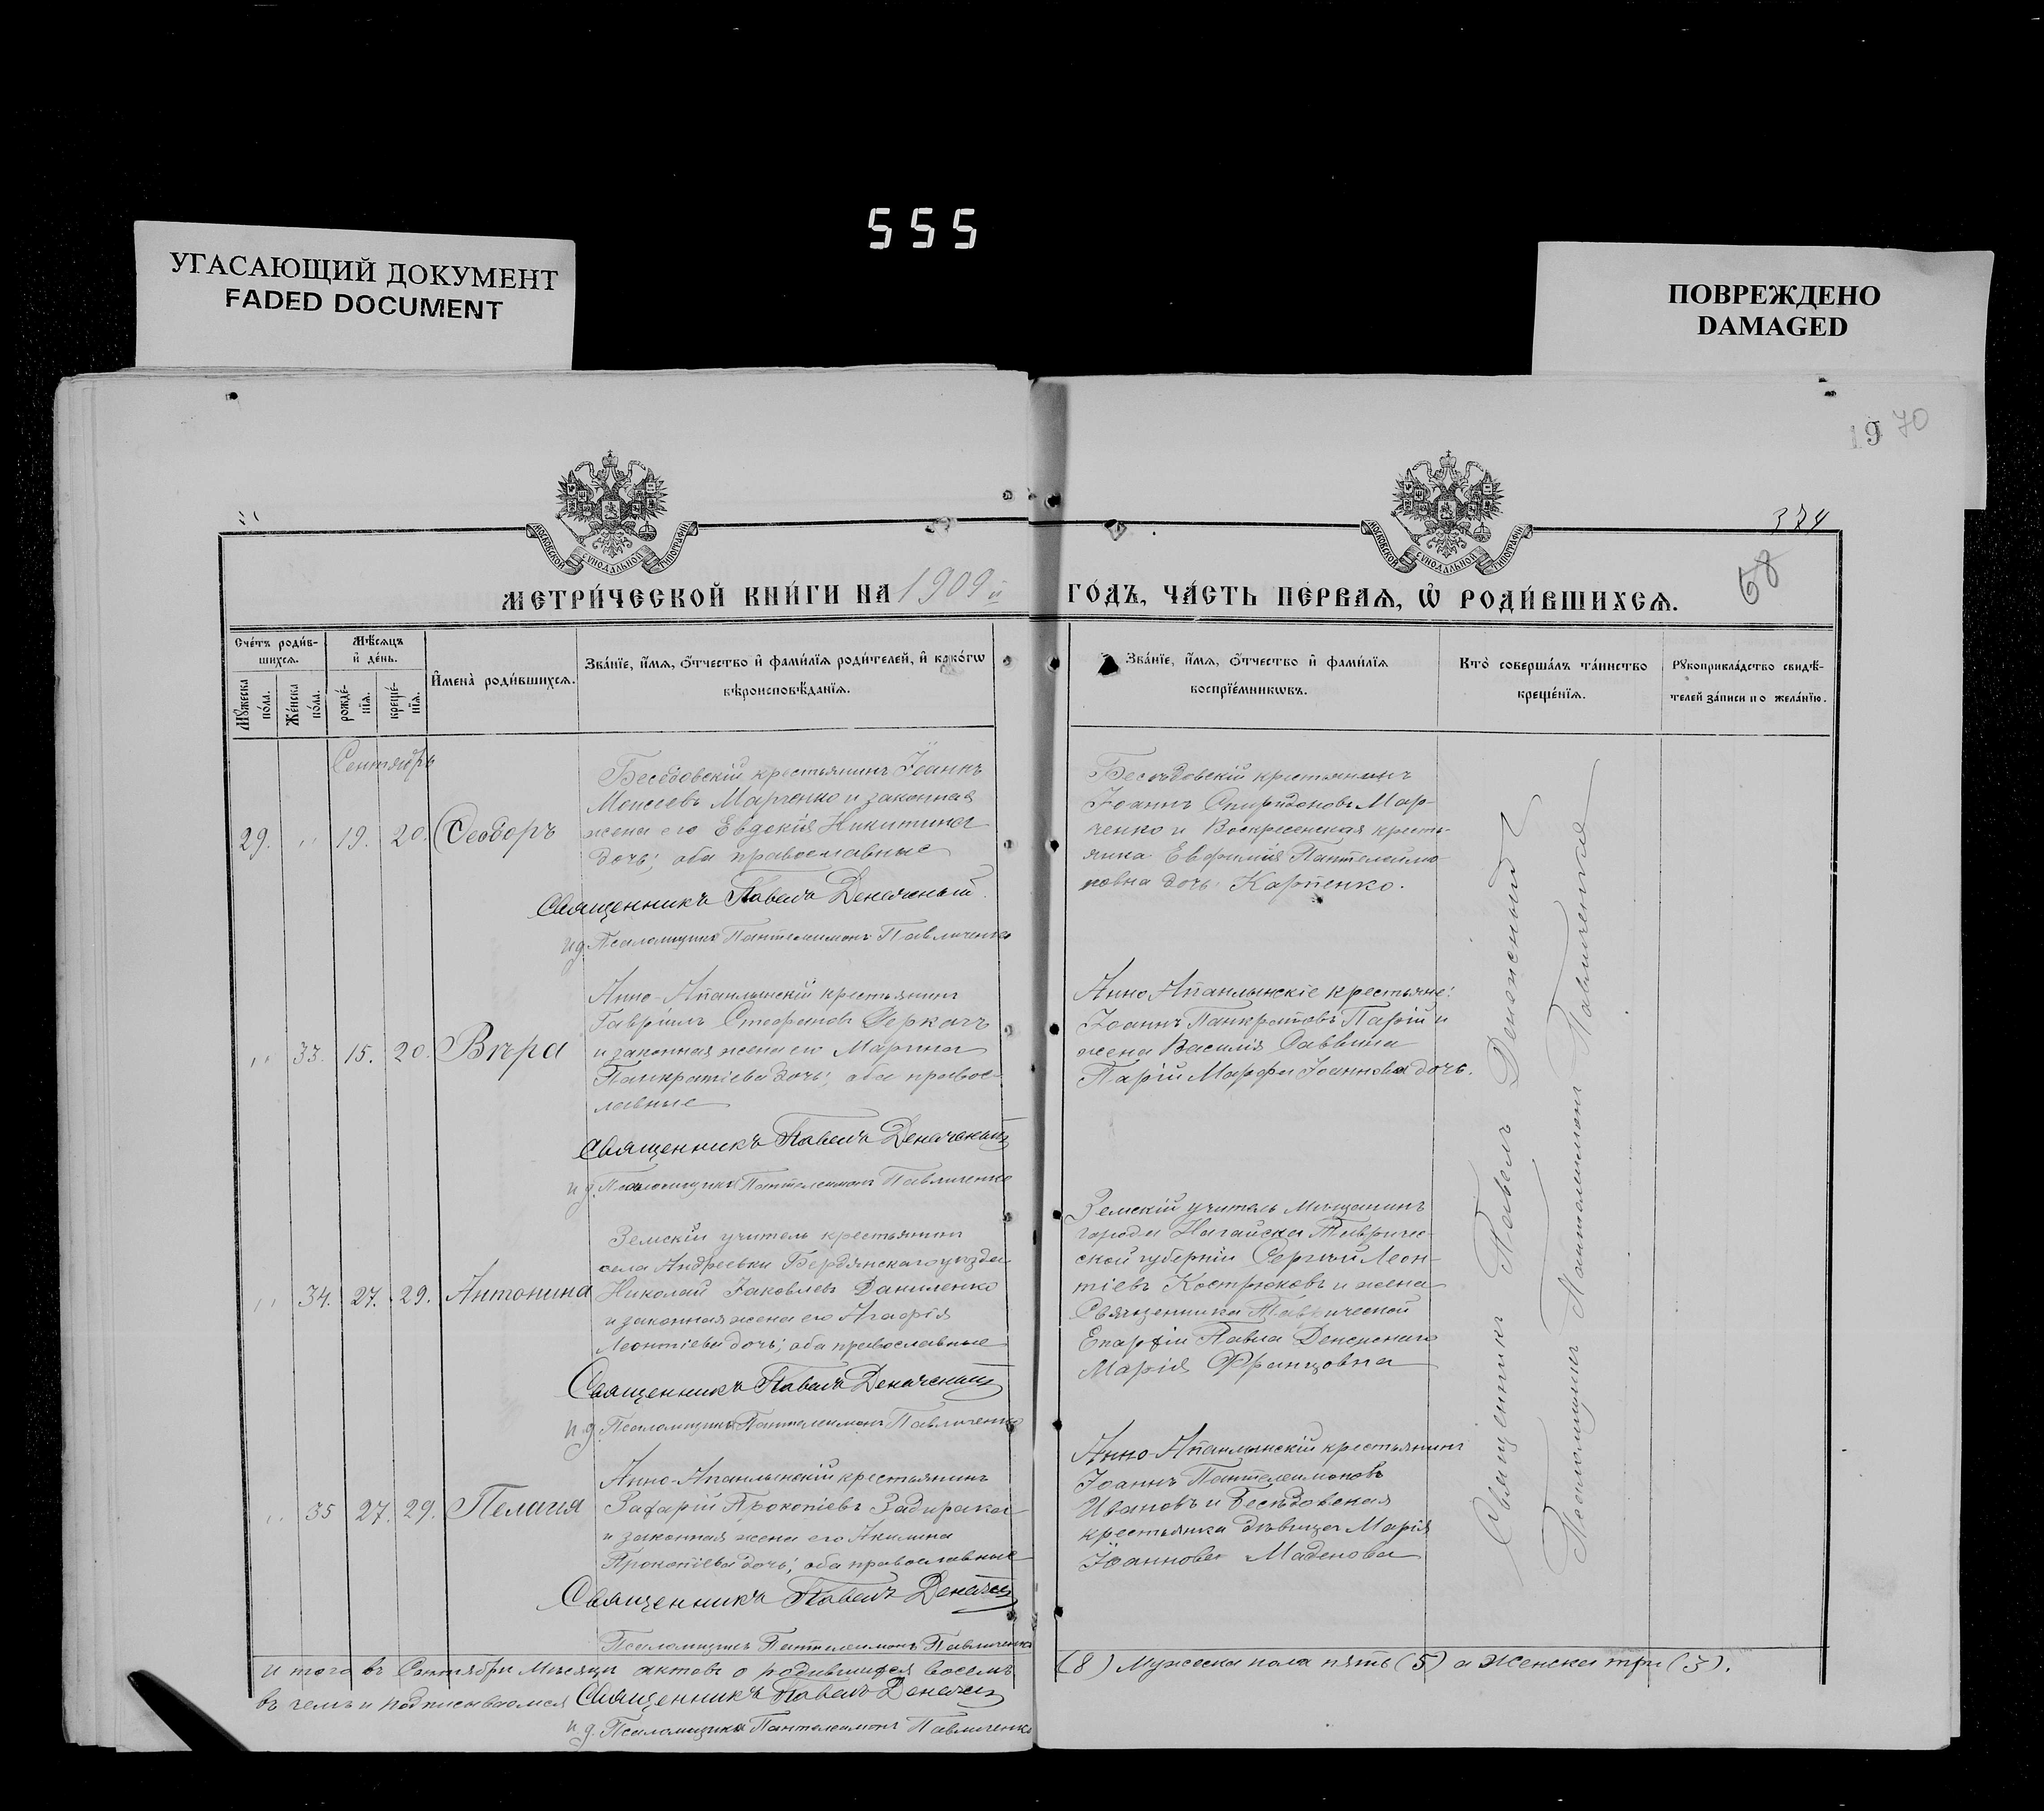 555
УГАСАЮЩИЙ ДОКУМЕНТ
FADED DOCUMENT
ПОВРЕЖДЕНО
DAMAGED
19 70
324
68
МОСКОВСКОЙ СѴНОДАЛЬНОЙ ТИПОГРАФІИ
МОСКОВСКОЙ СѴНОДАЛЬНОЙ ТИПОГРАФІИ
МЕТРИ́ЧЕСКОЙ КНИ́ГИ НА 1909й ГО́ДЪ, ЧА́СТЬ ПЕ́РВАѦ, Ѡ РОДИ́ВШИХСѦ.
Сче́тъ роди́в-
шихсѧ.
Мꙋ́жеска по́ла.
Же́нска по́ла.
Мѣ́сѧцъ
и҆ де́нь.
рожде́-
нїѧ.
креще́-
нїѧ.
И҆мена̀ роди́вшихсѧ.
Зва́нїе, и҆́мѧ, ѻ҆́тчество и҆ фами́лїѧ роди́телей, и҆ како́гѡ
вѣроисповѣ́данїѧ.
Зва́нїе, и҆́мѧ, ѻ҆́тчество и҆ фами́лїѧ
воспрїе́мникѡвъ.
Кто̀ соверша́лъ та́инство
креще́нїѧ.
Рꙋкоприкла́дство свидѣ́-
телей за́писи по жела́нїю.
Сентябрь
29. " 19. 20. Ѳеодоръ
Беседовскій крестьянинъ Іоаннъ
Моисеевъ Марченко и законная
жена его Евдокія Никитина
дочь; оба православные
Священникъ Павелъ
и. д. Псаломщика Пантелеимонъ Павличенко
Бесѣдовскій крестьянинъ
Іоаннъ Спиридоновъ Мар-
ченко и Воскресенская кресть-
янка Евфимія Пантелеимо-
новна дочь Карпенко.
" 33. 15. 20. Вѣра
Анно-Апанлынскій крестьянинъ
Гавріилъ Стефановъ Деркачъ
и законная жена его Марина
Панкратіева дочь; оба правос-
лавные
Священникъ Павелъ
и. д. Псаломщика Пантелеимонъ Павличенко
Анно Апанлынскіе крестьяне:
Іоаннъ Панкратовъ Парій и
жена Василія Саввина
Парій Марфа Іоаннова дочь.
" 34. 27. 29. Антонина
Земскій учитель крестьянин
села Андреевки Бердянскаго уѣзда
Николай Іаковлевъ Даниленко
и законная жена его Агафія
Леонтіева дочь; оба православные
Священникъ Павелъ
и. д. Псаломщика Пантелеимонъ Павличенко
Земскій учитель мѣщанинъ
города Ногайска Тавриче-
ской губерніи Сергѣй Леон-
тіевъ Костроковъ и жена
Священника Таврической
Епархіи Павла
Марія Францовна
" 35 27. 29. Пелагія
Анно-Апанлынскій крестьянинъ
Захарій Прокопіевъ Задирака
и законная жена его Акилина
Прокопіева дочь; оба православные
Священникъ Павелъ
Псаломщикъ Пантелеимонъ Павличенко
Анно-Апанлынскій крестьянинъ
Іоаннъ Пантелеимоновъ
Ивановъ и Бесѣдовская
крестьянка дѣвица Марія
Іоаннова Маденова
Священникъ Павелъ
Псаломщикъ Пантелеимонъ Павличенко
И того въ Сентябрѣ Мѣсяцѣ актовъ о родившихся восемь (8) Мужеска пола пять (5) а Женска три (3).
въ чемъ и подписываемся Священникъ Павелъ
и. д. Псаломщика Пантелеимонъ Павличенко